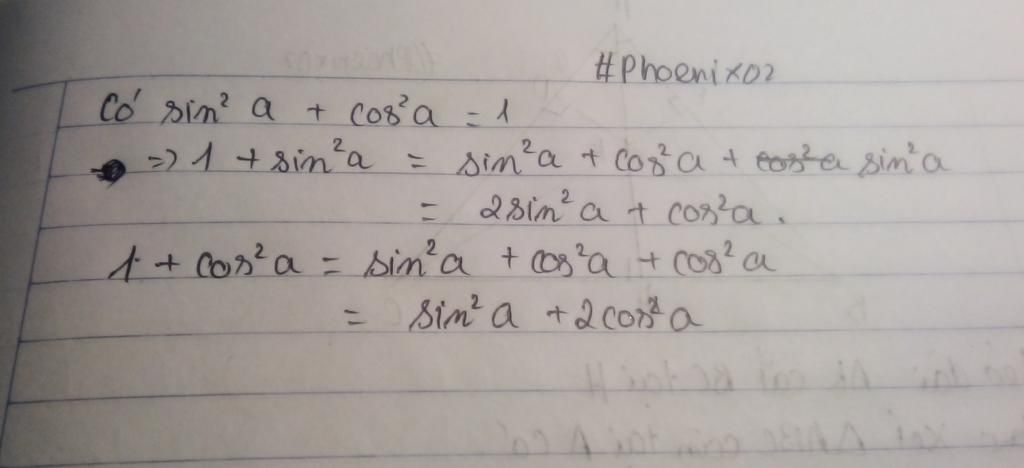 #Phoenix02
Có sin² a + cos²a = 1
=> 1 + sin²a = sin²a + cos²a + cos²a sin²a
= 2sin²a + cos²a.
1 + cos²a = sin²a + cos²a + cos²a
= sin²a + 2cos²a